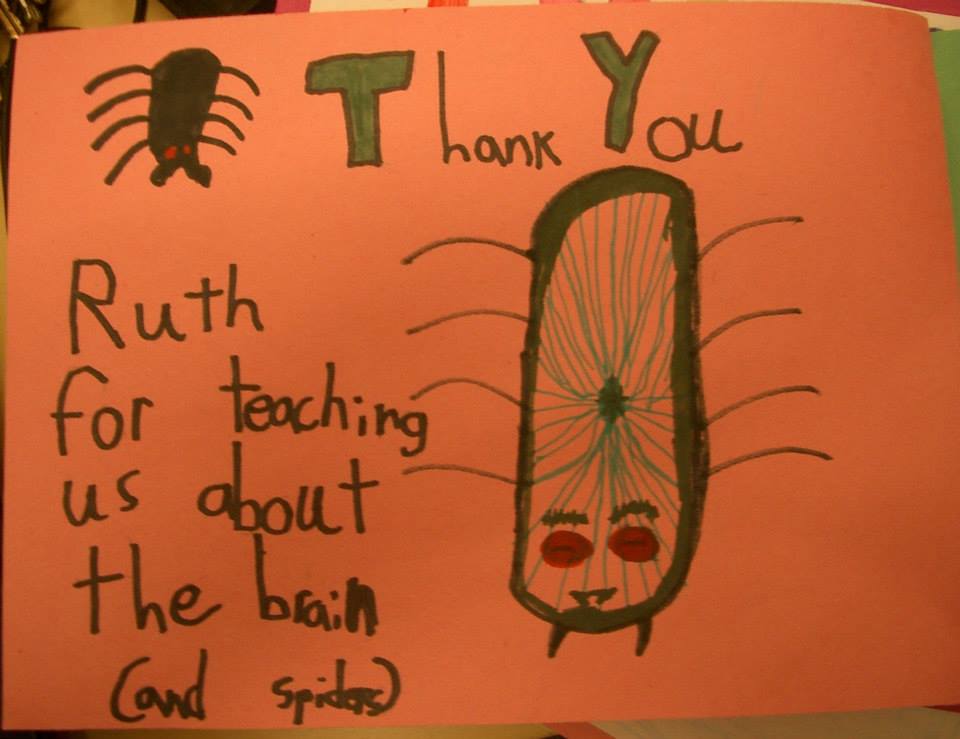 Thank You
Ruth
for teaching
us about
the brain
(and spiders)